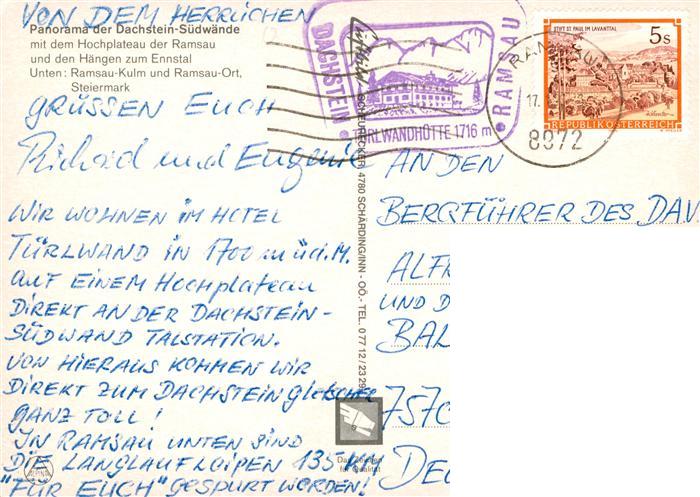 VON DEM HERRLICHEN
Panorama der Dachstein-Südwände
mit dem Hochplateau der Ramsau
und den Hängen zum Ennstal
Unten: Ramsau-Kulm und Ramsau-Ort,
Steiermark
GRÜSSEN EUCH
Richard und Eugenie
WIR WOHNEN IM HOTEL
TÜRLWAND IN 1700 m ü.d.M.
AUF EINEM HOCHPLATEAU
DIREKT AN DER DACHSTEIN-
SÜDWAND TALSTATION.
VON HIERAUS KOMMEN WIR
DIREKT ZUM DACHSTEINGLETSCHER
GANZ TOLL!
IN RAMSAU UNTEN SIND
DIE LANGLAUFLOIPEN 135 KM
"FÜR EUCH" GESPURT WORDEN!
DACHSTEIN • RAMSAU
RLWANDHÜTTE 1716 m
STIFT ST. PAUL IM LAVANTTAL
5 S
REPUBLIK ÖSTERREICH
RAMSAU
17.
8972
4780 SCHÄRDING/INN - OÖ. - TEL. 0 77 12 / 23 29
für Qualität
AN DEN
BERGFÜHRER DES DAV.
ALFR
UND D
BAL
7570
DEU